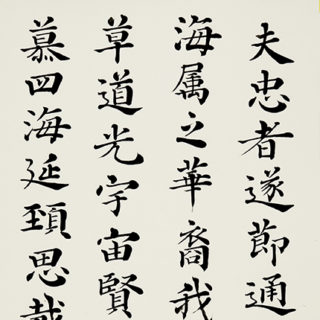 夫忠者遂節通
海属之華裔我
草道光宇宙賢
慕四海延頚思哉